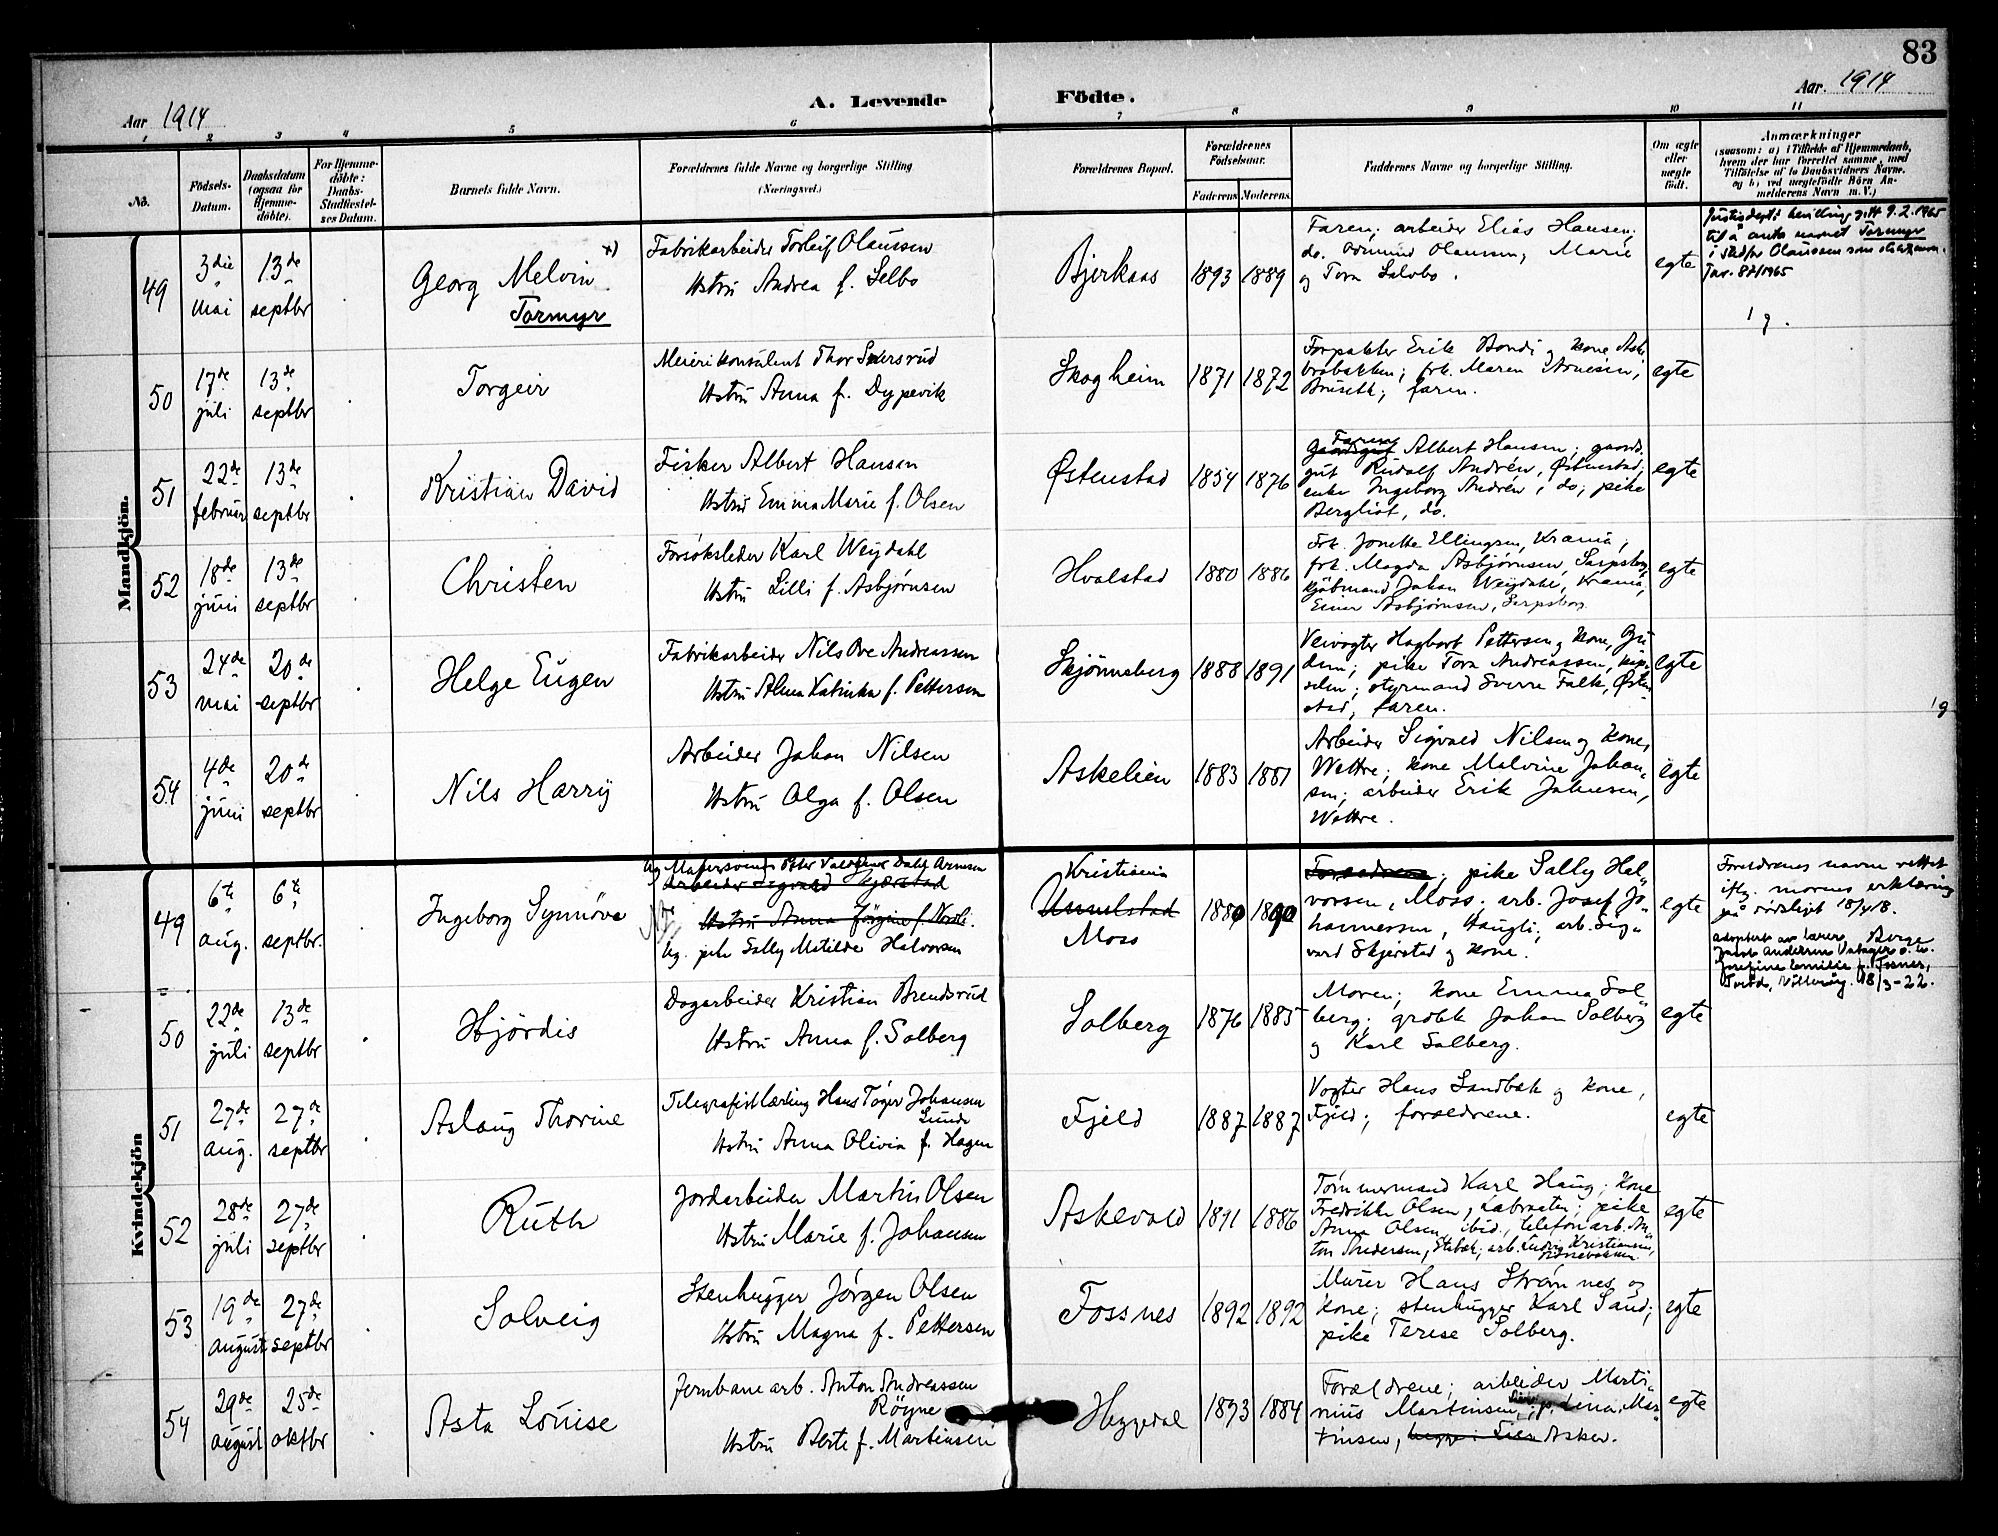 83
Aar 1914
A. Levende Födte.
Aar. 1914
1 2 3 4 5 6 7 8 9 10 11
No.
Födsels-
Datum.
Daabsdatum
(ogsaa for
Hjemme-
döbte).
For Hjemme-
döbte:
Daabs-
Stadfæstel-
ses Datum.
Barnets fulde Navn.
Forældrenes fulde Navne og borgerlige Stilling
(Næringsvei.)
Forældrenes Bopæl.
Forældrenes
Födselsaar.
Faderens Moderens
Faddernes Navne og borgerlige Stilling.
Om ægte
eller
uægte
födt.
Anmærkninger
(saasom: a) i Tilfælde af Hjemmedaab,
hvem der har forrettet samme, med
Tilföielse af to Daabsvidners Navne.
og b) ved uægtefödte Börn An-
melderens Navn m. V.)
Mandkjön.
49
3die
mai
13de
septbr
Georg Melvin x)
Tormyr
Fabrikarbeider Torleif Olaussen
Hstru Andrea f. Selbo
Bjerkaas
1893 1889
Faren; arbeider Elias Hansen;
do. Odmund Olaussen; Marie
og Tora Salobo.
egte
9.2.1965
til å anta navnet Tormyr
i stedfor Olaussen som slektsnavn.
Jnr. 87/1965
1 g.
50
17de
juli
13de
septbr
Torgeir
Meierikonsulent Thor Snersrud
Hstru Anna f. Dypevik
Skogheim
1871 1872
Forpakter Erik Bondi og kone, Ask-
; frk. Maren Arnesen,
Bruseth; faren.
egte
51
22de
februar
13de
septbr
Kristian David
Fisker Albert Hansen
Hstru Emma Marie f. Olsen
Østenstad
1854 1876
Faren
Albert Hansen; gaards-
gut Rudolf Andrén, Østenstad;
enke Ingeborg Andrén, do; pike
Bergliot, do.
egte
52
18de
juni
13de
septbr
Christen
Forsøksleder Karl Weydahl
Hstru Lilli f. Asbjørnsen
Hvalstad
1880 1886
Frk. Jonette Ellingsen, Krania;
frk. Magda Asbjørnsen, Sarpsborg;
kjøbmand Johan Weydahl, Krania,
Einar Asbjørnsen, Sarpsborg
egte
53
24de
mai
20de
septbr
Helge Eugen
Fabrikarbeider Nils Ove Andreassen
Hstru Alma Katinka f. Pettersen
Skjönneberg
1888 1891
Veivogter Hagbart Pettersen og kone, Gu-
dum; pike Tora Andreassen,
; styrmand Sverre Falk, Østen-
stad; faren.
egte
1 g
54
4de
juni
20de
septbr
Nils Harry
Arbeider Johan Nilsen
Hstru Olga f. Olsen
Askelien
1883 1881
Arbeider Sigvald Nilsen og kone,
Wettre; kone Malvine Johan-
sen; arbeider Erik Johnsen,
Wettre.
egte
Kvindekjön
49
6te
aug.
6te
septbr.
Ingeborg Synnöve
Ug. Malersvend Peter Valdemar Dahl Arnesen
Arbeider Sigvald Skjerstad
Hstru Anna Jörgine f. Nordli.
Ug. pike Sally Matilde Halvorsen
Kristiania
Unnelstad
Moss
1880 1890
Forældrene; pike Sally Hal-
vorsen, Moss; arb. Josef Jo-
hannessen, Haugli; arb. Sig-
vard Skjerstad og kone.
egte
Foreldrenes navne rettet
iflg. morens erklæring
på 18/4 18.
adoptert av lærer Børge
Jacob Andersen
Josefine Emilie f. Fosnes,
18/3-22.
50
22de
juli
13de
septbr
Hjördis
Dagarbeider Kristian Brendsrud
Hstru Anna f. Solberg
Solberg
1876 1885
Moren; kone Emma Sol-
berg; grdbk Johan Solberg
og Karl Solberg.
egte
51
27de
aug.
27de
septbr
Aslaug Thorine
Telegrafistlærling Hans Tøger Johansen
Lunde
Hstru Anna Olivia f. Hagen
Fjeld
1887 1887
Vogter Hans Sandbæk og kone,
Fjeld; forældrene.
egte
52
28de
juli
27de
septbr
Ruth
Jordarbeider Martin Olsen
Hstru Marie f. Johansen
Askevold
1891 1886
Tömmermand Karl Haug; kone
Fredrikke Olsen, Labraaten; pike
Anna Olsen, ibid., telefonarb. An-
ton Andersen, Stabæk; arb. Ludvig Kristiansen,
egte
53
19de
august
27de
septbr
Solveig
Stenhugger Jörgen Olsen
Hstru Magna f. Pettersen
Fossnes
1892 1892
Murer Hans Strömnes og
kone; stenhugger Karl Sand;
pike Terese Solberg.
egte
54
29de
august
25de
oktbr
Asta Louise
Jernbanearb. Anton Andreassen
Röyne
Hstru Berte f. Martinsen
Heggedal
1893 1884
Forældrene; arbeider Marti-
nius Martinsen, p. Lina Mar-
tinsen, begge i Lier Asker.
egte